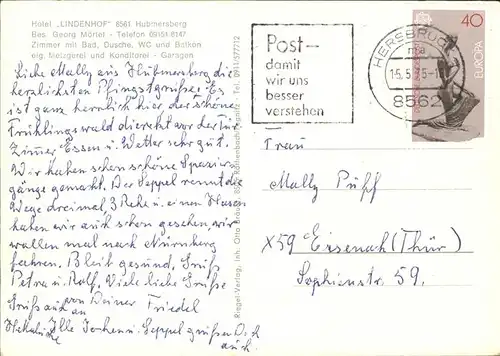 Hotel „LINDENHOF" 8561 Hubmersberg
Bes. Georg Mörtel - Telefon 09151-8147
Zimmer mit Bad, Dusche, WC und Balkon
eig. Metzgerei und Konditorei - Garagen
Liebe Mally aus Hubmersberg die
herzlichsten Pfingstgrüsse. Es
ist ganz herrlich hier der schöne
Frühlingswald direkt vor der Tür
Zimmer Essen u. Wetter sehr gut.
Wir haben schon schöne Spazier
gänge gemacht. Der Seppel rennt die
Wege dreimal, 3 Rehe u. einen Hasen
haben wir auch schon gesehen, wir
wollen mal nach Nürnberg
fahren. Bleib gesund, Gruß
Petra u. Rolf. Viele liebe Grüße
von Deiner Friedel
Gruß auch an
Ille Jochen u. Seppel grüßen Dich
auch.
Riegel-Verlag, Inh. Otto
Tel. 0911/577712
Post–
damit
wir uns
besser
verstehen
HERSBRUCK
15.5.75-1
8562
40
EUROPA
Frau
Mally Puff
X59 Eisenach (Thür)
Sophienstr 59.